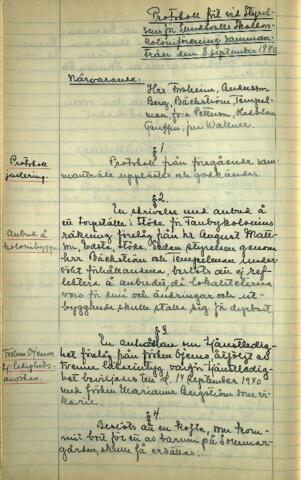 Protokoll fört vid Styrel-
sens för Sundsvalls Skollovs-
koloniförening samman-
träde den 8 september 1940
Närvarande:
Herr Froheim, Andersson
Berg, Bäckström, Tempel-
man, fröken Petterson, Hasselbom
fru Wallner.
§ 1.
Protokoll
justering.
Protokoll från föregående sam-
manträde upplästes och godkändes.
§ 2.
Anbud å
kolonibyggn.
En skrivelse med anbud å
ett torpställe i Stöde för Fanbykoloniens
räkning förelåg från hr August Matts-
son, Edsta, Stöde. Sedan styrelsen genom
herr Bäckström och Tempelman under-
sökt förhållandena, beslöts att ej ref-
lektera å anbudet, då lokaliteterna
voro för små och ändringar och ut-
byggnader skulle ställa sig för dyrbart
§ 3.
Fröken Ojemos
tjledighets-
ansökan.
En anhållan om tjänstledig-
het förelåg från fröken Ojemo, åtföljt av
läkarintyg varför tjänstledig-
het beviljades till d. 14 September 1940
med fröken Marianne Bergström som vi-
karie.
§ 4.
Beslöts att en kofta, som kom-
mit bort för en av barnen på Sommar-
gården, skulle få ersättas.